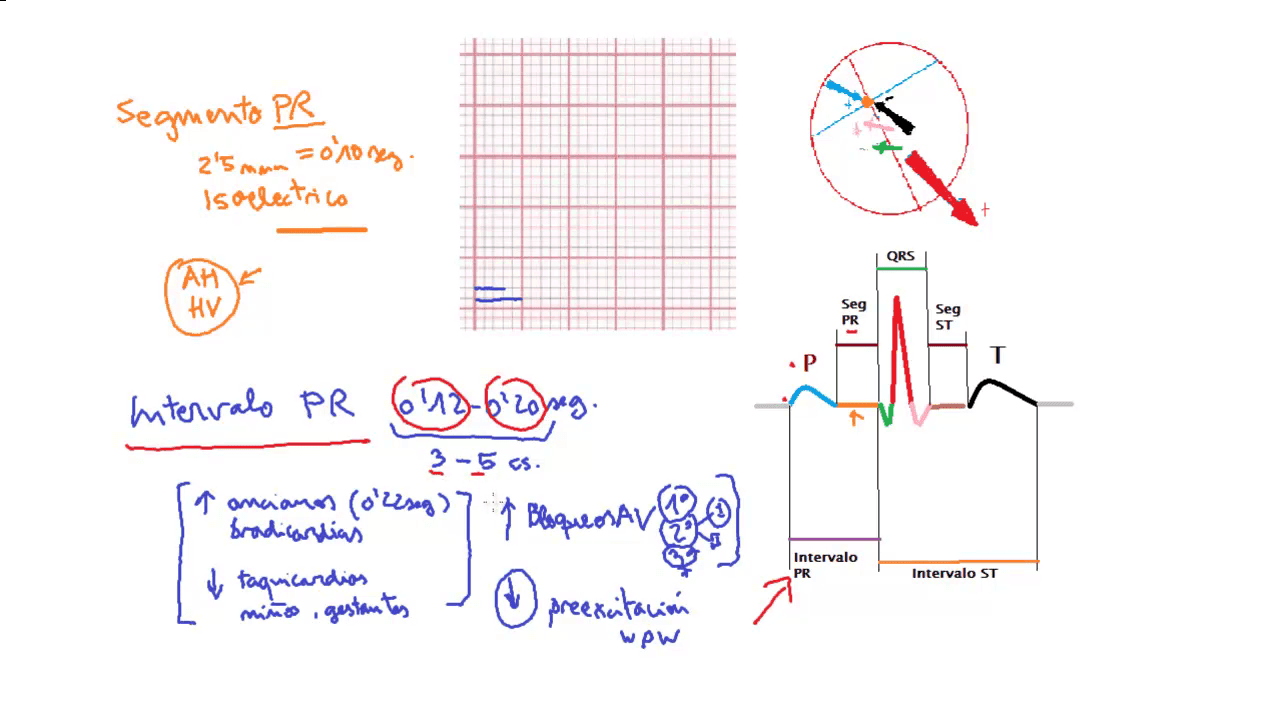 Segmento PR
2'5 mm = 0'10 seg.
Isoelectrico
AH
HV
Intervalo PR 0'12 - 0'20 seg.
3 - 5 cs.
↑ ancianos (0'22 seg)
bradicardias
↓ taquicardias
niños, gestantes
↑ Bloqueos AV 1º
2º I
II
3º
↓ preexcitación
WPW
+ -
+
+
QRS
Seg
PR
Seg
ST
P
T
Intervalo
PR
Intervalo ST